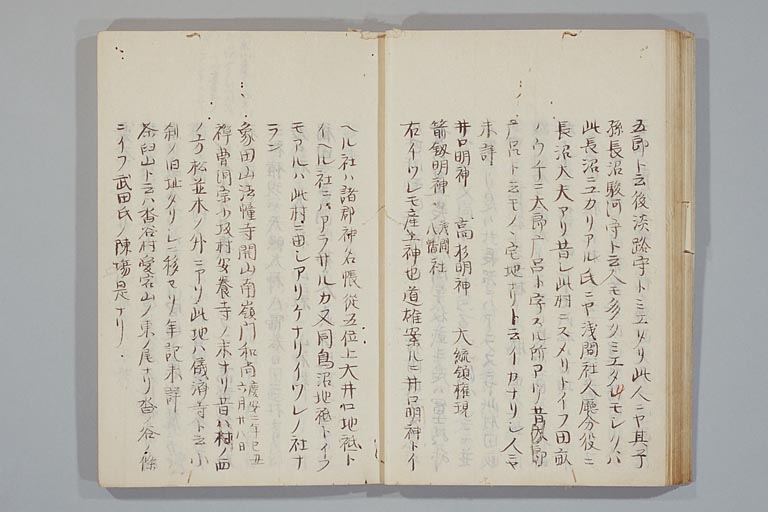 五郎ト云後淡路守トミエタリ此人ニヤ其子
孫長沼駿河守ト云人モ多クミエタレモシクハ
此長沼ニユカリアル氏ニヤ浅間社人廳分役ニ
長沼大夫アリ昔シ此村ニスメリトイフ田畝
ノウチニ太郎戸呂ト字スル所アリ昔太郎
戸呂ト云モノヽ宅地ナリト云イカナリシ人ニヤ
未詳
井口明神 高杉明神 大統領権現
箭釼明神 浅間 八幡社
右イツレモ産土神也道雄案ルニ井口明神トイ
ヘル社ハ諸郡神名帳従五位上大井口地祗ト
イヘル社ニハアラサルカ又同鳥沼地祗トイフ
モアルハ此村ニ由シアリケナリイツレノ社ナ
ラン
象田山法幢寺開山南嶺門和尚 慶安二年己丑 六月廿八日
禅曹洞宗小坂村安養寺ノ末ナリ昔ハ村ノ西
ノ方松並木ノ外ニアリ此地ハ儀済寺ト云小
刹ノ旧址ナリシニ移セリ年記未詳
茶臼山ト云ハ沓谷村愛宕山ノ東ノ尾ナリ沓谷ノ條
ニイフ武田氏ノ陳場是ナリ